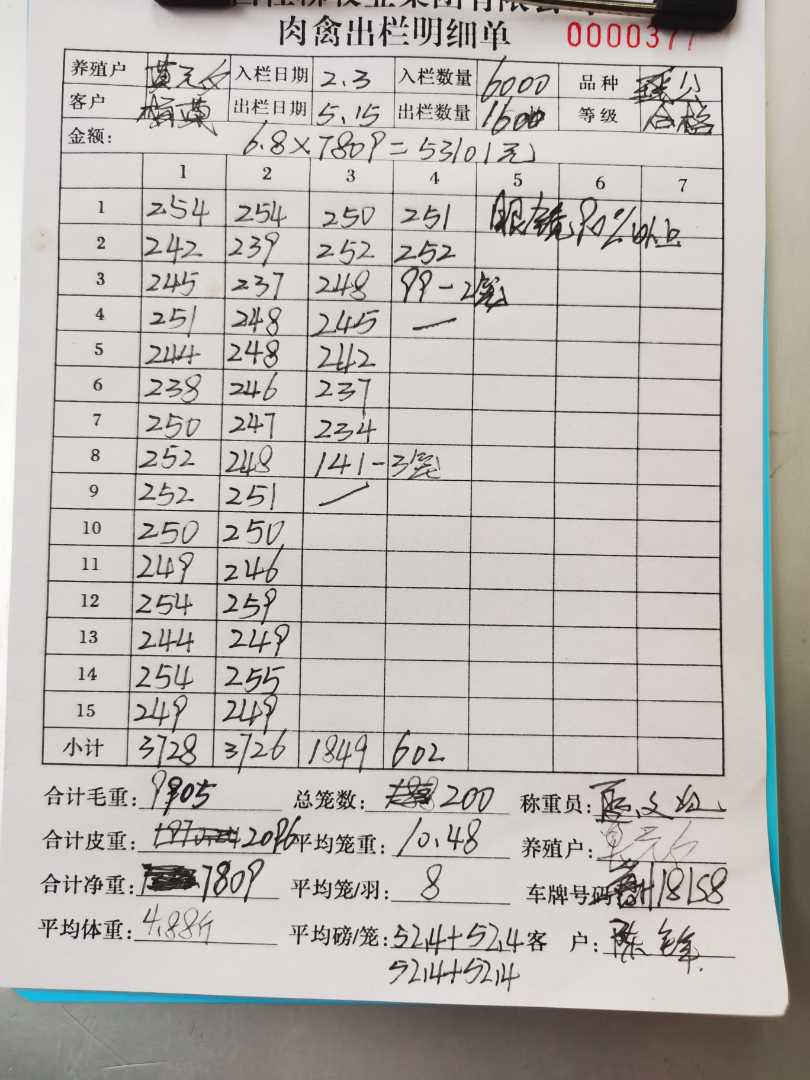 肉禽出栏明细单 0000377
养殖户 入栏日期 2.3 入栏数量 6000 品种
客户 出栏日期 5.15 出栏数量 1600 等级 合格
金额: 6.8×7809=53101元
1 2 3 4 5 6 7
1 254 254 250 251 眼镜90%以上
2 242 239 252 252
3 245 237 248 99-2笼
4 251 248 245 —
5 244 248 242
6 238 246 237
7 250 247 234
8 252 248 141-3笼
9 252 251 —
10 250 250
11 249 246
12 254 259
13 244 249
14 254 255
15 249 249
小计 3728 3726 1849 602
合计毛重: 9905 总笼数: 200 称重员:
合计皮重: 2096 平均笼重: 10.48 养殖户:
合计净重: 7809 平均笼/羽: 8 车牌号码 18158
平均体重: 4.88斤 平均磅/笼: 52.4+52.4 客户: 陈锋
52.4+52.4